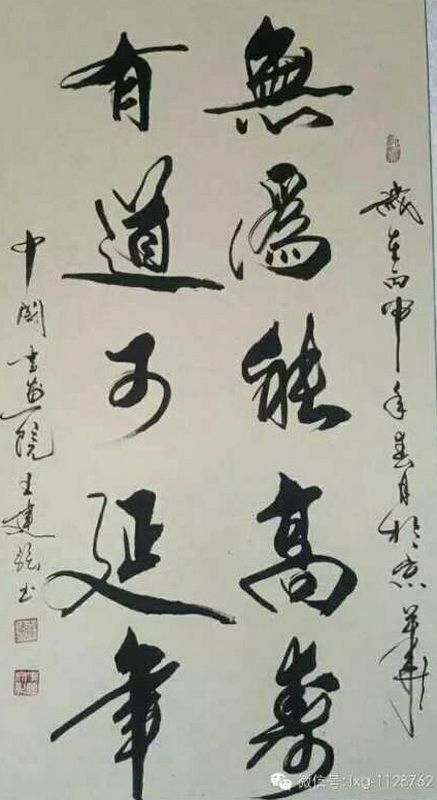 歲在丙申年春月於京華
無為能高壽
有道可延年
中國書畫院王建强书
微信号:lxg-1128762